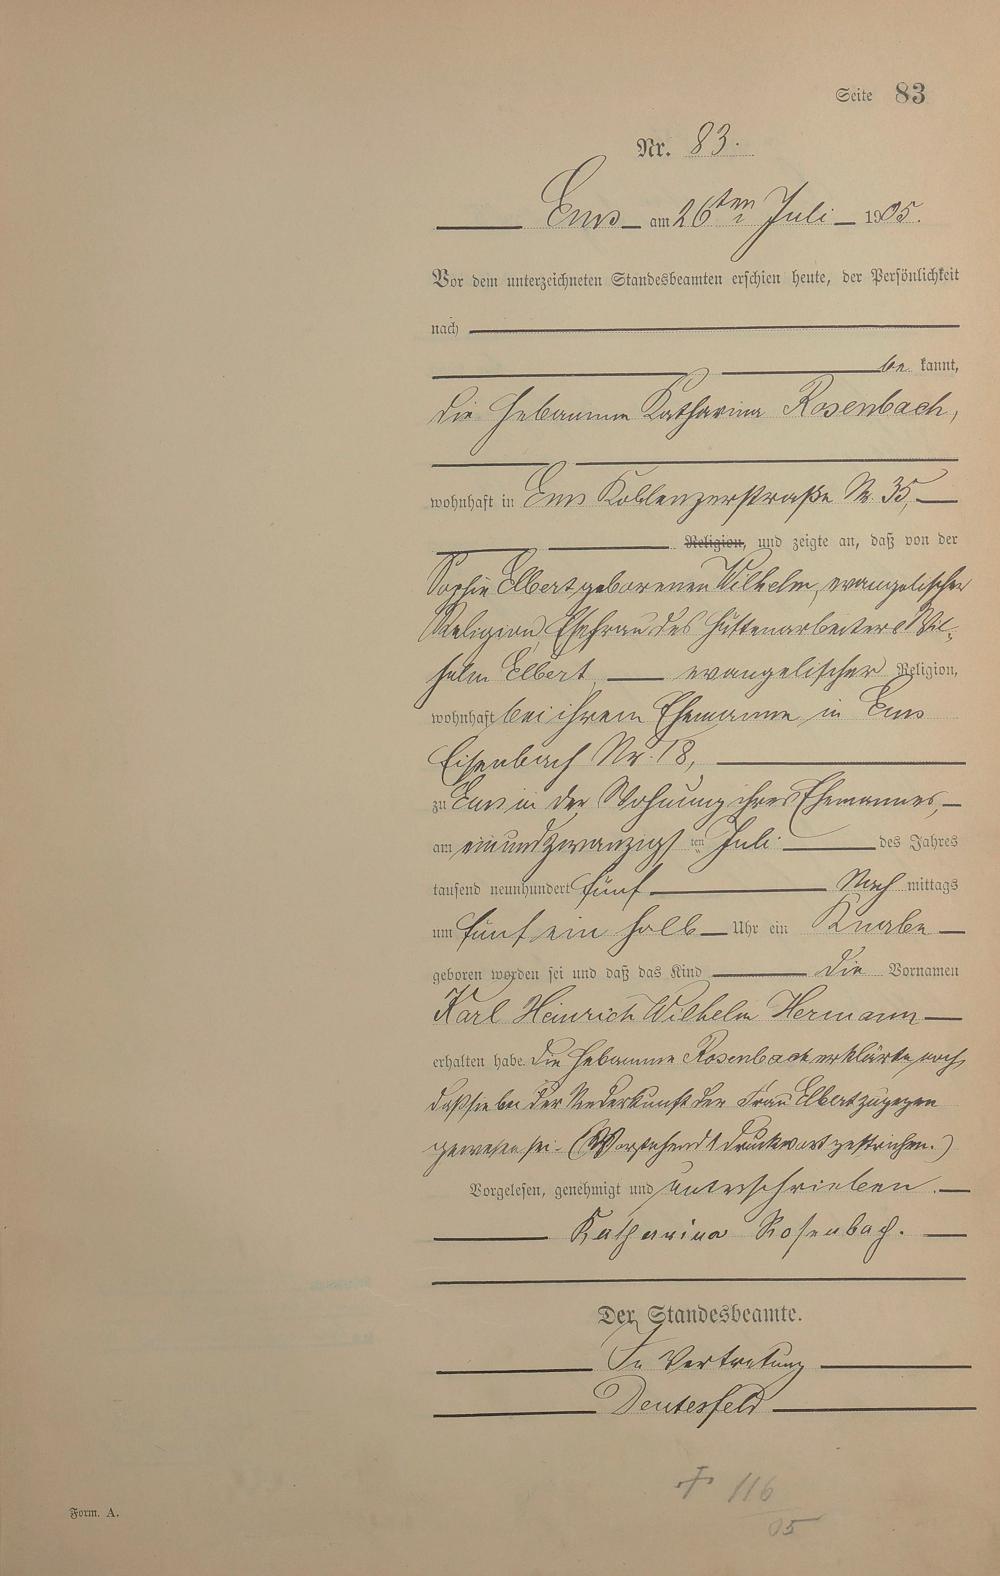 Seite 83
Nr. 83.
Ems am 26ten Juli 1905.
Vor dem unterzeichneten Standesbeamten erschien heute, der Persönlichkeit
nach
be kannt,
die Hebamme Katharina Rosenbach,
wohnhaft in Ems Koblenzerstraße Nr. 35,
Religion, und zeigte an, daß von der
Sophie Elbert geborenen Wilhelm, evangelischer
Religion, Ehefrau des Hüttenarbeiters Wil-
helm Elbert, evangelischer Religion,
wohnhaft bei ihrem Ehemanne in Ems
Eisenbach Nr. 18,
zu Ems in der Wohnung ihres Ehemannes,
am einundzwanzigsten Juli des Jahres
tausend neunhundert fünf Nach mittags
um fünf ein halb Uhr ein Knabe
geboren worden sei und daß das Kind die Vornamen
Karl Heinrich Wilhelm Hermann
erhalten habe. Die Hebamme Rosenbach erklärte noch,
daß sie bei der Niederkunft der Frau Elbert zugegen
gewesen sei. (Vorstehend 1 Druckwort gestrichen.)
Vorgelesen, genehmigt und unterschrieben.
Katharina Rosenbach.
Der Standesbeamte.
In Vertretung
Deutesfeld
Form. A.
† 116
05